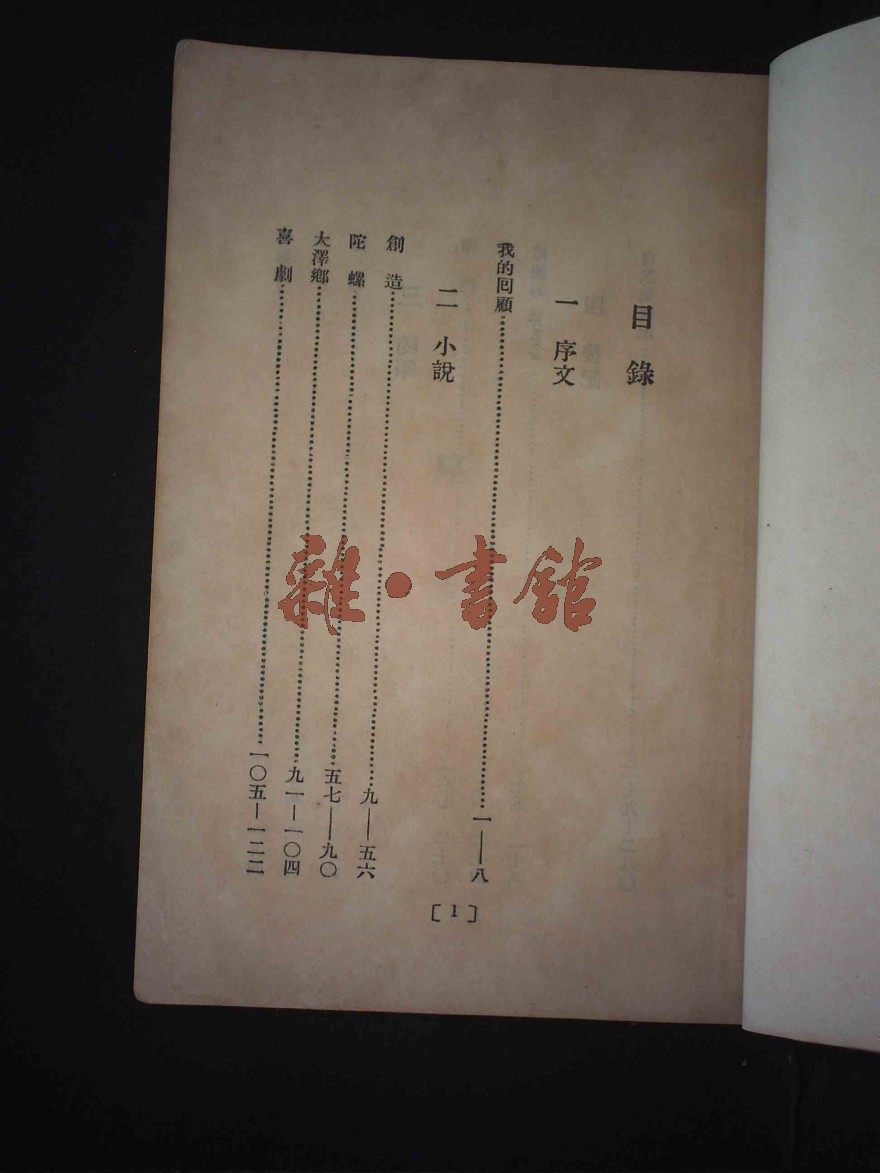 目錄
一 序文
我的囘顧……一——八
二 小說
創造……九——五六
陀螺……五七——九〇
大澤鄉……九一—一〇四
喜劇……一〇五—一二二
[1]
雜·書館